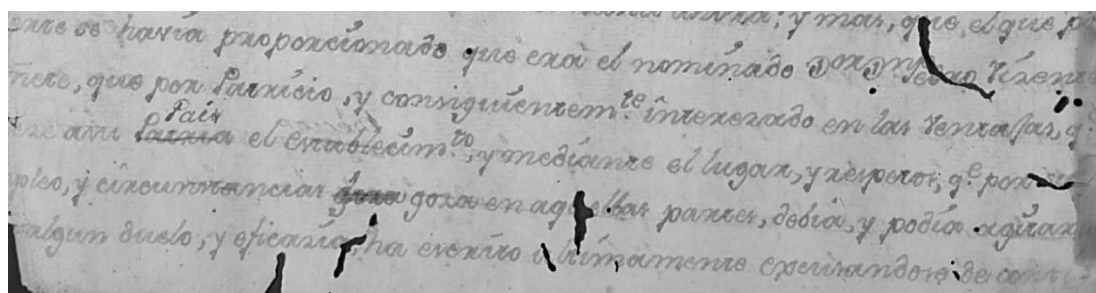 y mas, que el que
se havia proporcionado que era el nominado Don
que por Patricio, y consiguientem.te interezado en las Ventajas, q.e
Pais
Patria el establecim.to, y mediante el lugar, y respetos, q.e por
circunstancias goza goza en aquellas partes, debia, y podia agitar
algun duelo, y eficasia, ha escrito ultimamente excusandose de